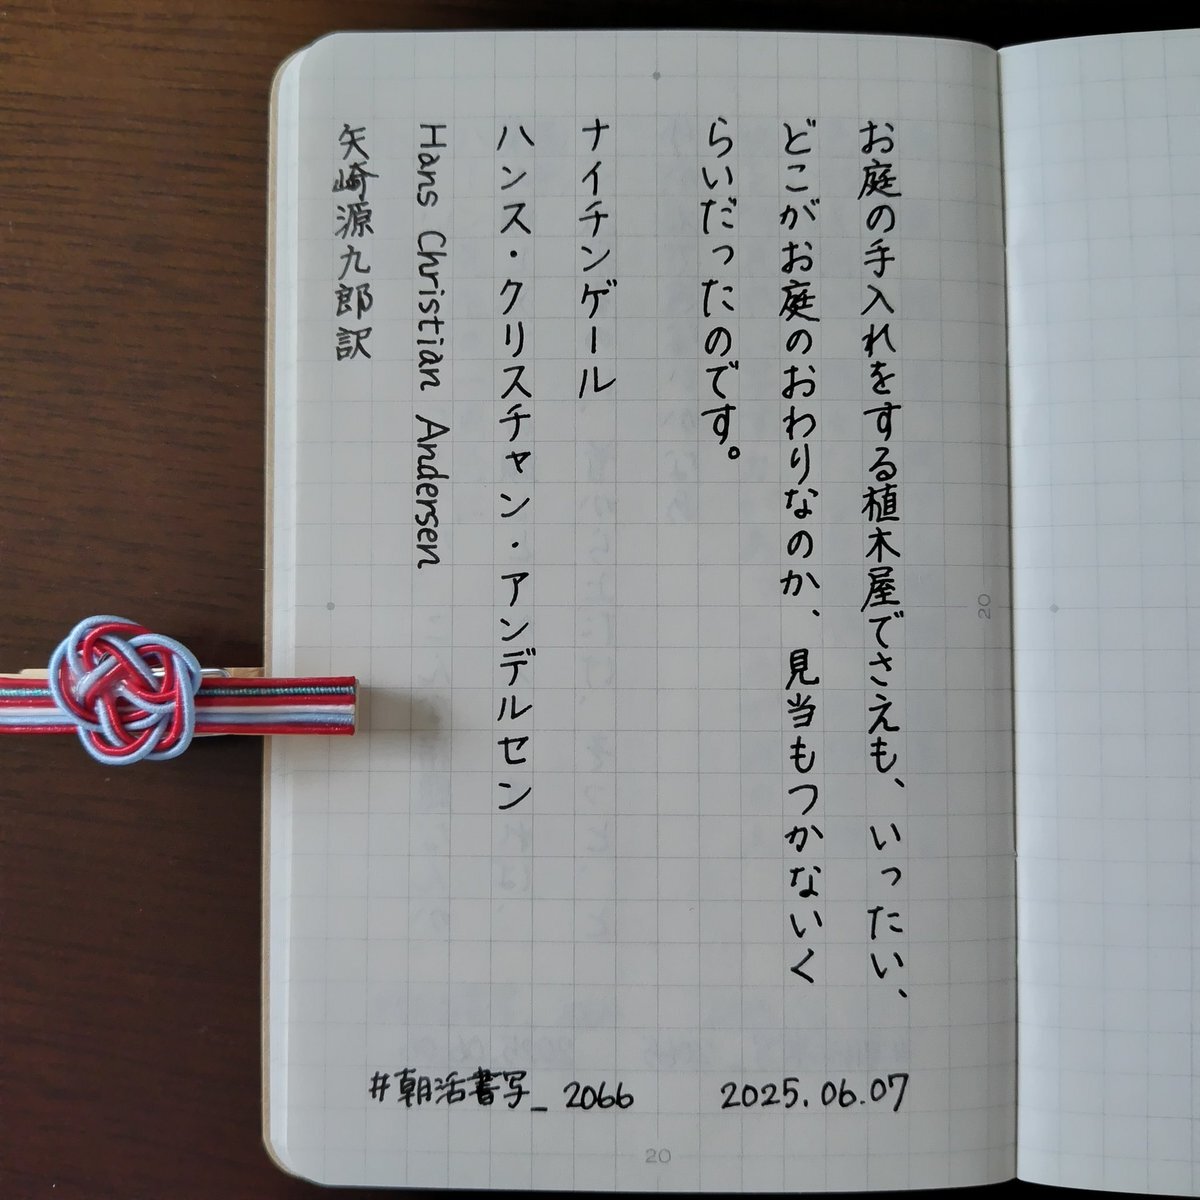 お庭の手入れをする植木屋でさえも、いったい、
どこがお庭のおわりなのか、見当もつかないく
らいだったのです。
ナイチンゲール
ハンス・クリスチャン・アンデルセン
Hans Christian Andersen
矢崎源九郎訳
#朝活書写_2066
2025.06.07
20
20